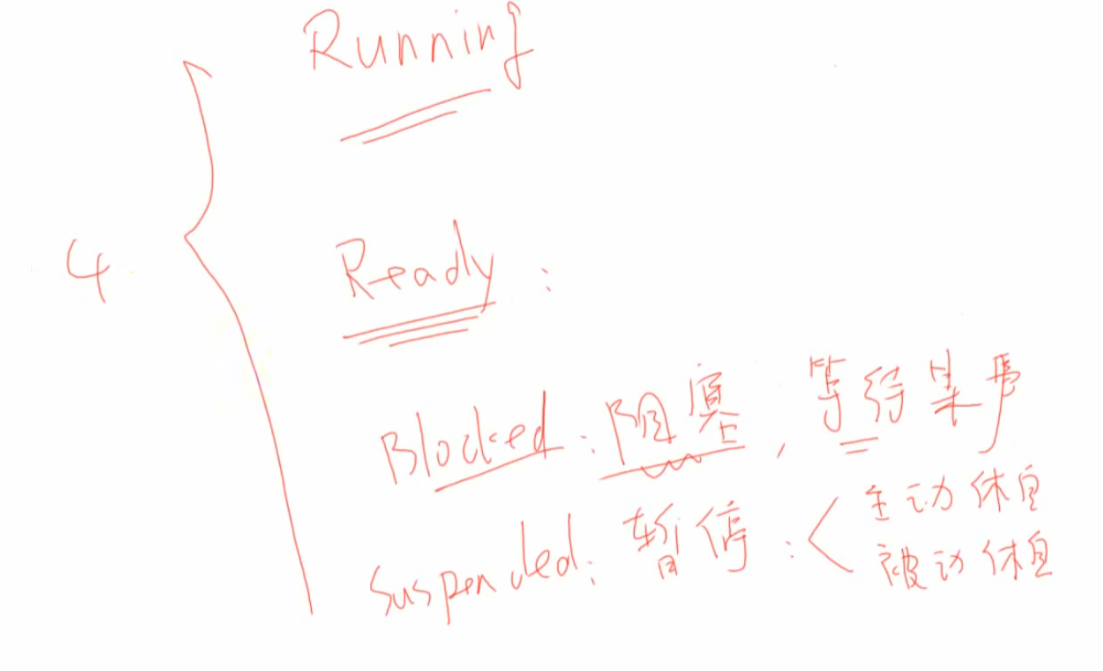 Running
4
Ready :
Blocked : 阻塞, 等待某事
Suspended : 暂停 :
主动休息
被动休息